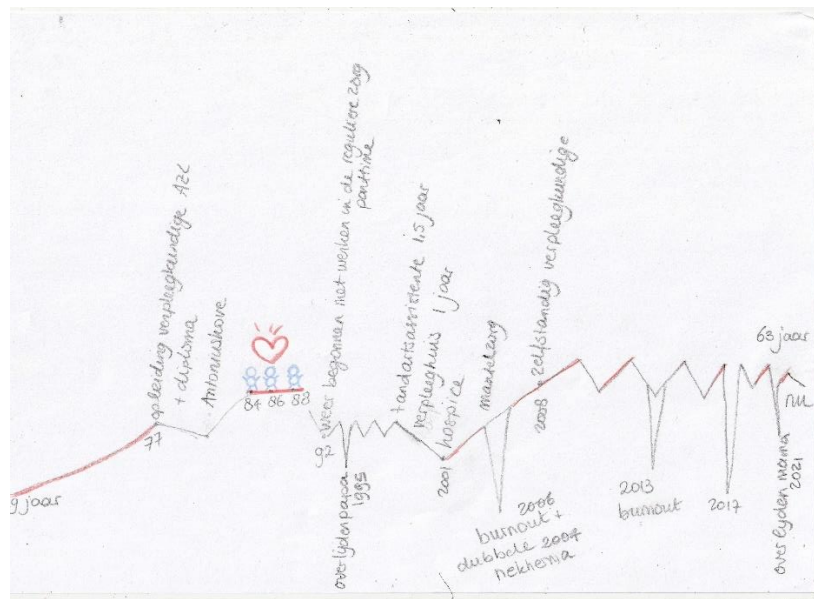 9 jaar
77
opleiding verpleegkundige AZL
+ diploma
Antoniushove
84 86 88
92
weer begonnen met werken in de reguliere zorg
parttime
overlijden papa
1995
tandartsassistente 1,5 jaar
verpleeghuis 1 jaar
hospice
2001
mantelzorg
2006
burnout +
dubbele 2004
nekhernia
2008
zelfstandig verpleegkundige
2013
burnout
2017
63 jaar
nu
overlijden mama
2021